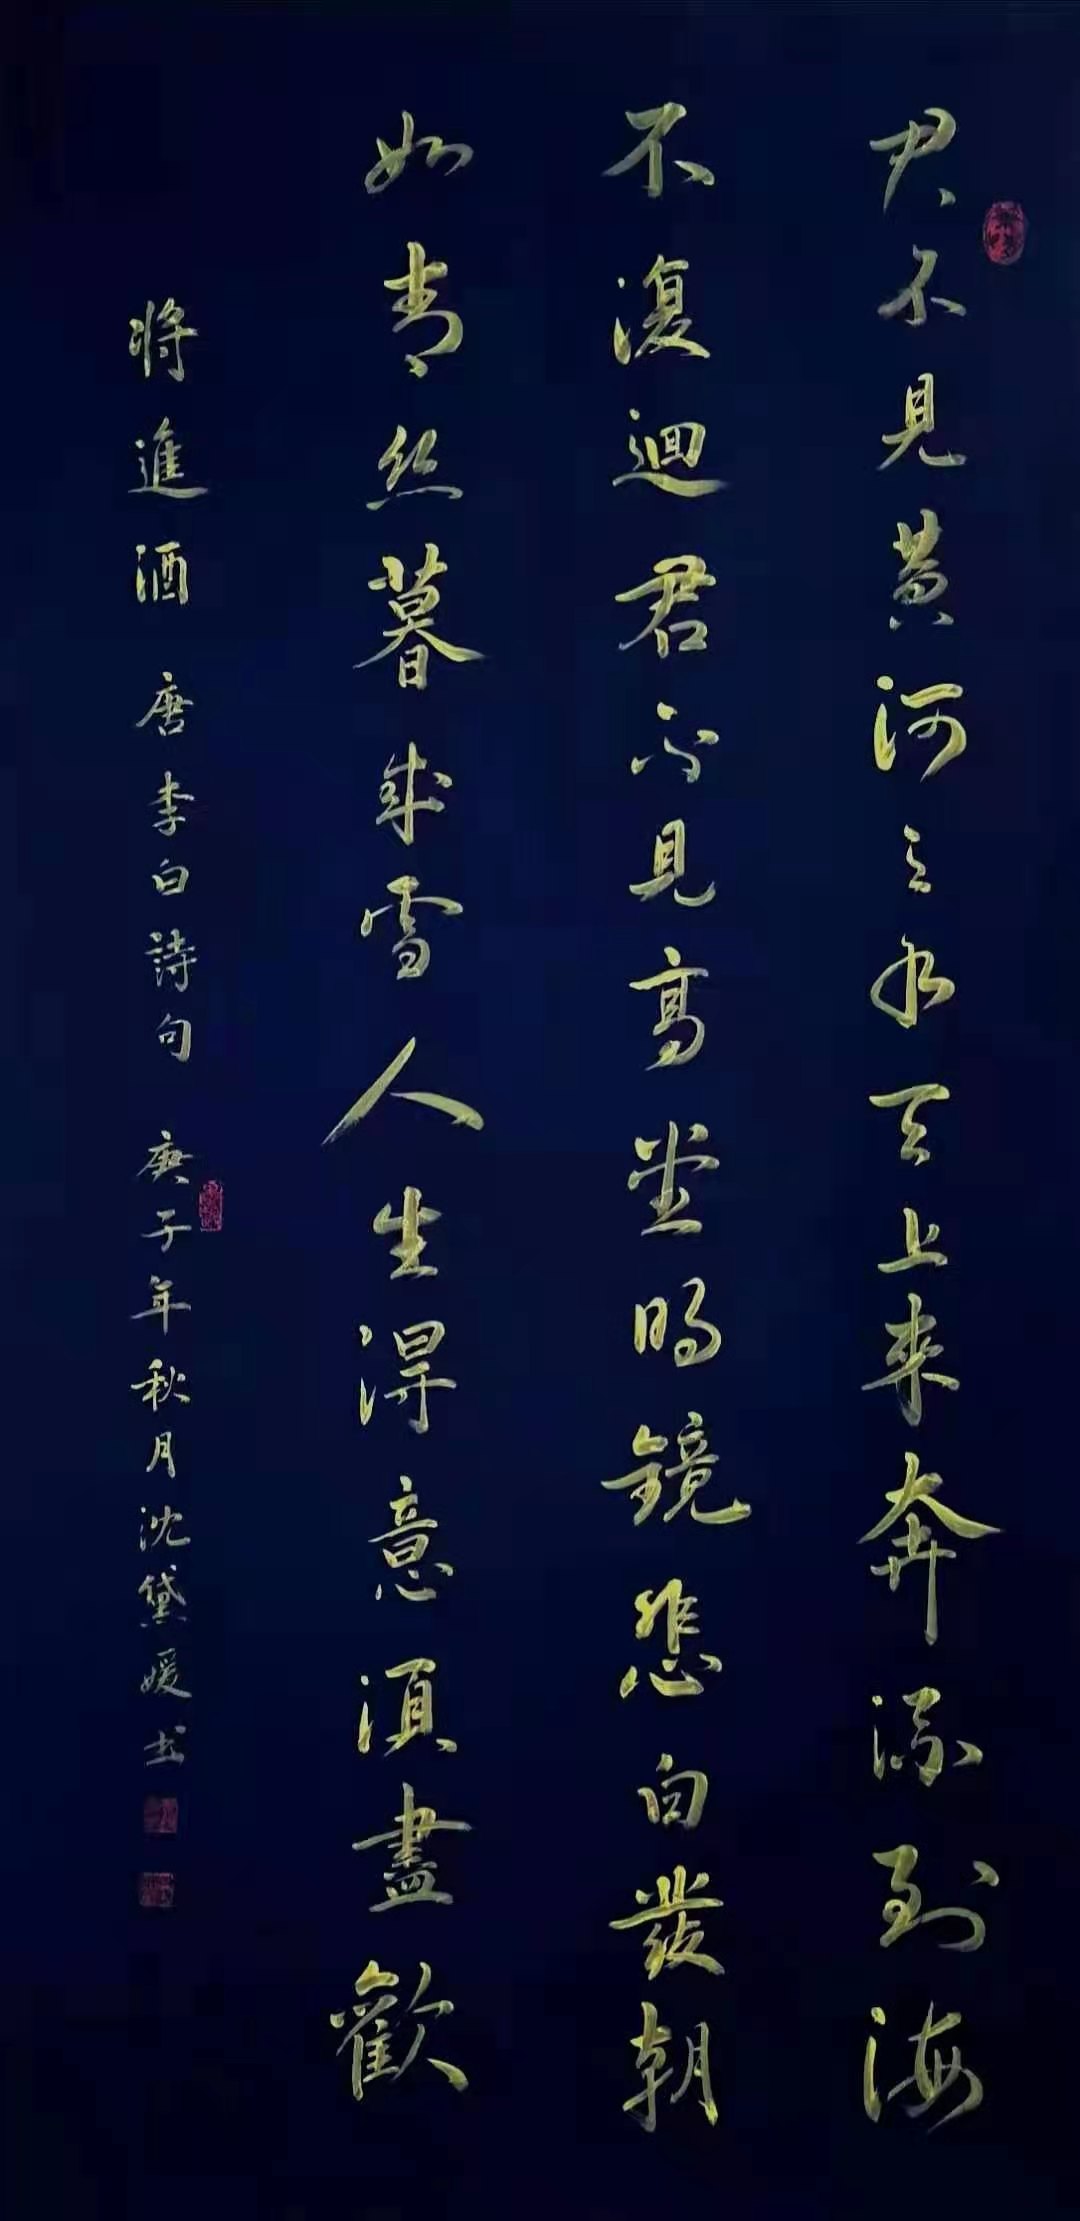 君不見黄河之水天上来奔流到海
不復迴君不見高堂明鏡悲白發朝
如青丝暮成雪人生得意須盡歡
將進酒 唐李白詩句 庚子年秋月沈黛媛书